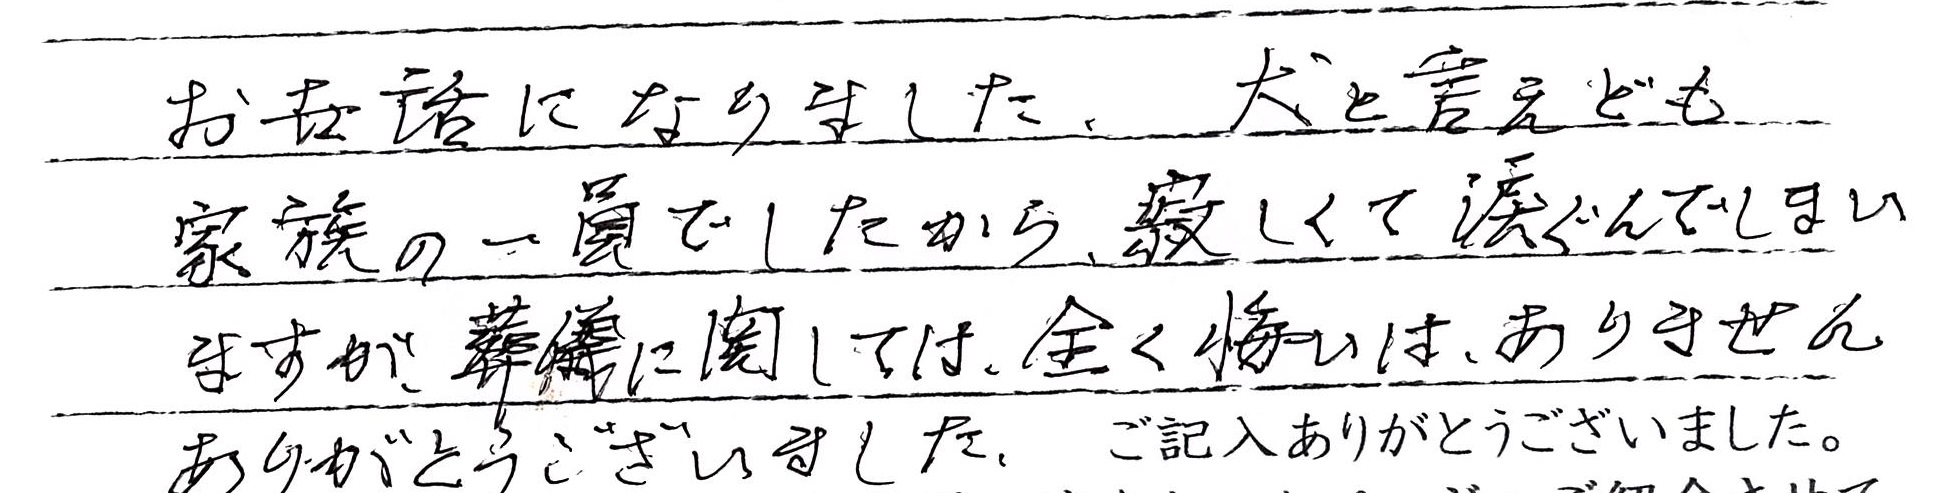 お世話になりました、犬と言えども
家族の一員でしたから、寂しくて涙ぐんでしまい
ますが、葬儀に関しては、全く悔いは、ありません
ありがとうございました、 ご記入ありがとうございました。
ご紹介させて